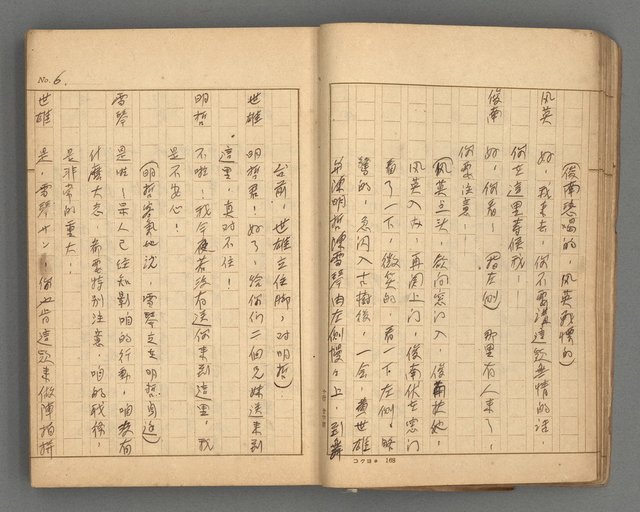 (俊南恐喝的，風英我懷的)
風英 好，我來去，你不要講這款無情的話，
你在這里等候我！
俊南 好，你看！(指左側) 那里有人來了，
你要注意！
(風英点头，欲向窓门入，俊南扶她，
風英入内，再関上门，俊南伏在窓门
看了一下，微笑的，看一下左側，略
驚的，急闪入古樹後，一会，黄世雄
與陳明哲陳雪琴由左側慢々上，到舞
コクヨ 168
No. 6.
台前，世雄立住脚，对明哲)
世雄 明哲君！好了，給你们二個兄妹送來到
這里，真对不住！
明哲 不啦！我今夜若沒有送你來到這里，我
是不安心！
(明哲客氣地説，雪琴立在明哲身边)
雪琴 是啦！呆人已経知影咱的行動，咱要有
什麼大志，都要特別注意，咱的我係，
是非常的重大。
世雄 是，雪琴サン，你也肯這款來做陣拍拼